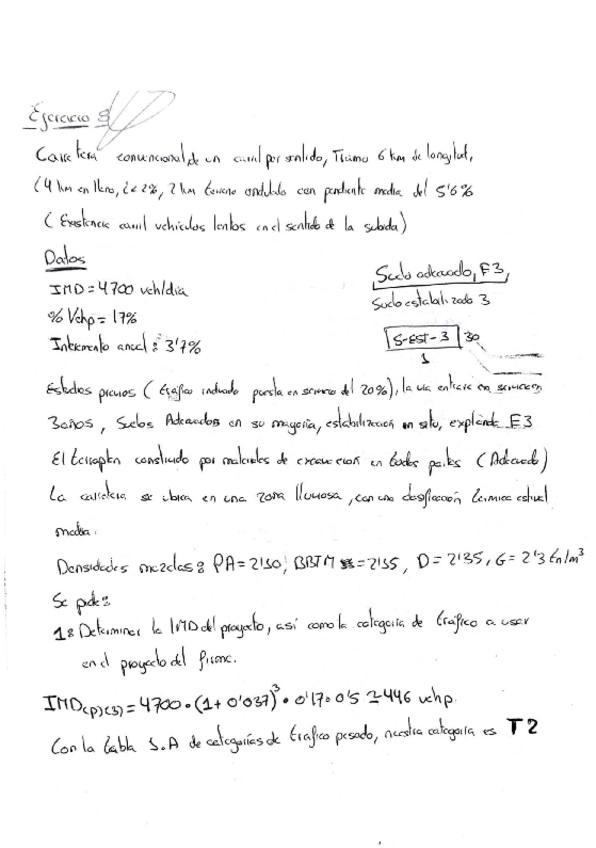 Ejercicio 8
Carretera convencional, de un carril por sentido, Tramo 6 km de longitud,
(4 km en llano, i<2%, 2 km terreno ondulado con pendiente media del 5'6%
(Existencia carril vehículos lentos en el sentido de la subida)
Datos
IMD = 4700 veh/día
% Vehp = 17%
Incremento anual: 3'7%
Suelo adecuado, E3,
Suelo estabilizado 3
S-EST-3 30
1
Estudios previos (tráfico inducido puesta en servicio del 20%), la vía entrará en servicio en
3 años, Suelos Adecuados en su mayoría, estabilización in situ, explanada E3
El terraplén construido por materiales de excavación en todas partes (Adecuado)
La carretera se ubica en una zona lluviosa, con una clasificación térmica estival
media.
Densidades mezclas: PA = 2'30; BBTM = 2'35, D = 2'35, G = 2'3 tn/m³
Se pide:
1: Determinar la IMD del proyecto, así como la categoría de tráfico a usar
en el proyecto del firme.
IMD(p)(3) = 4700 · (1 + 0'037)³ · 0'17 · 0'5 ≃ 446 vehp.
Con la tabla 1.A de categorías de tráfico pesado, nuestra categoría es T2